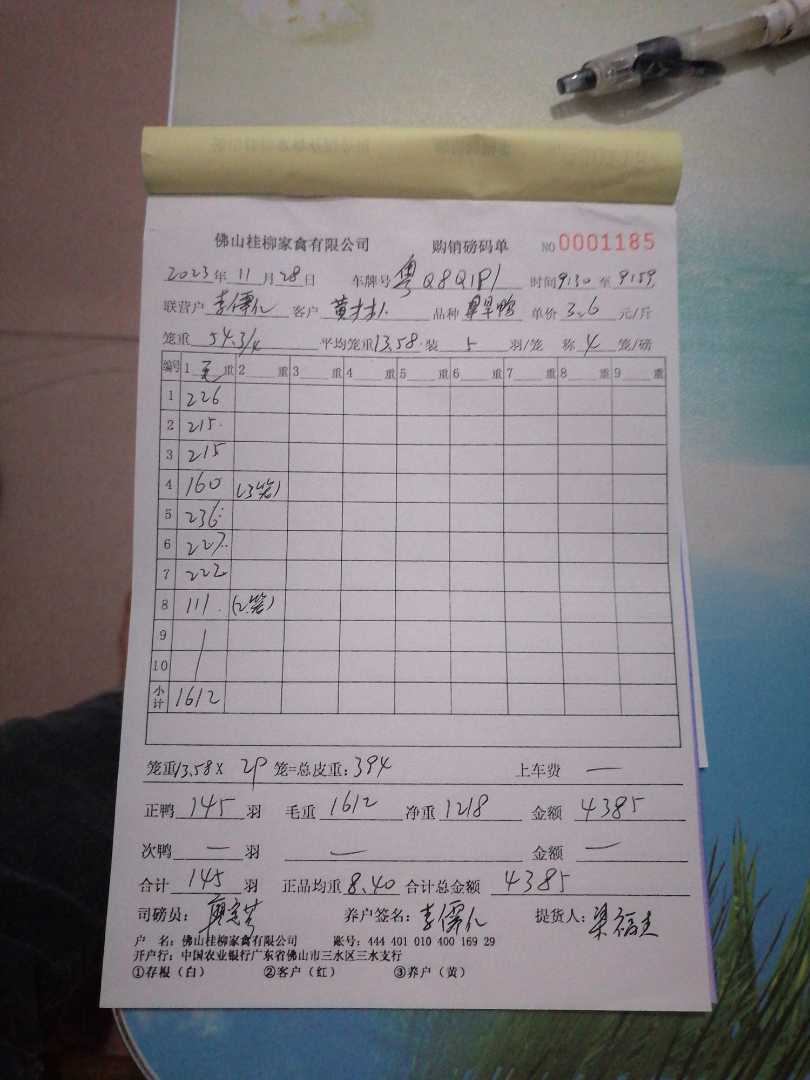 佛山桂柳家禽有限公司 购销磅码单 NO 0001185
2023年 11月 28日 车牌号 粤Q8Q1P1 时间 9:30 至 9:59
联营户 李儒仁 客户 黄 品种 旱鸭 单价 3.6 元/斤
笼重 54.3/4 平均笼重 13.58 装 5 羽/笼 称 4 笼/磅
编号 1 毛 重 2 重 3 重 4 重 5 重 6 重 7 重 8 重 9 重
1 226
2 215
3 215
4 160 (3笼)
5 236
6 227
7 222
8 111 (2笼)
9
10
小计 1612
笼重 13.58 × 29 笼=总皮重: 394 上车费 —
正鸭 145 羽 毛重 1612 净重 1218 金额 4385
次鸭 — 羽 — 金额 —
合计 145 羽 正品均重 8.40 合计总金额 4385
司磅员: 养户签名: 李儒仁 提货人: 梁福
户 名: 佛山桂柳家禽有限公司 账号: 444 401 010 400 169 29
开户行: 中国农业银行广东省佛山市三水区三水支行
①存根(白) ②客户(红) ③养户(黄)